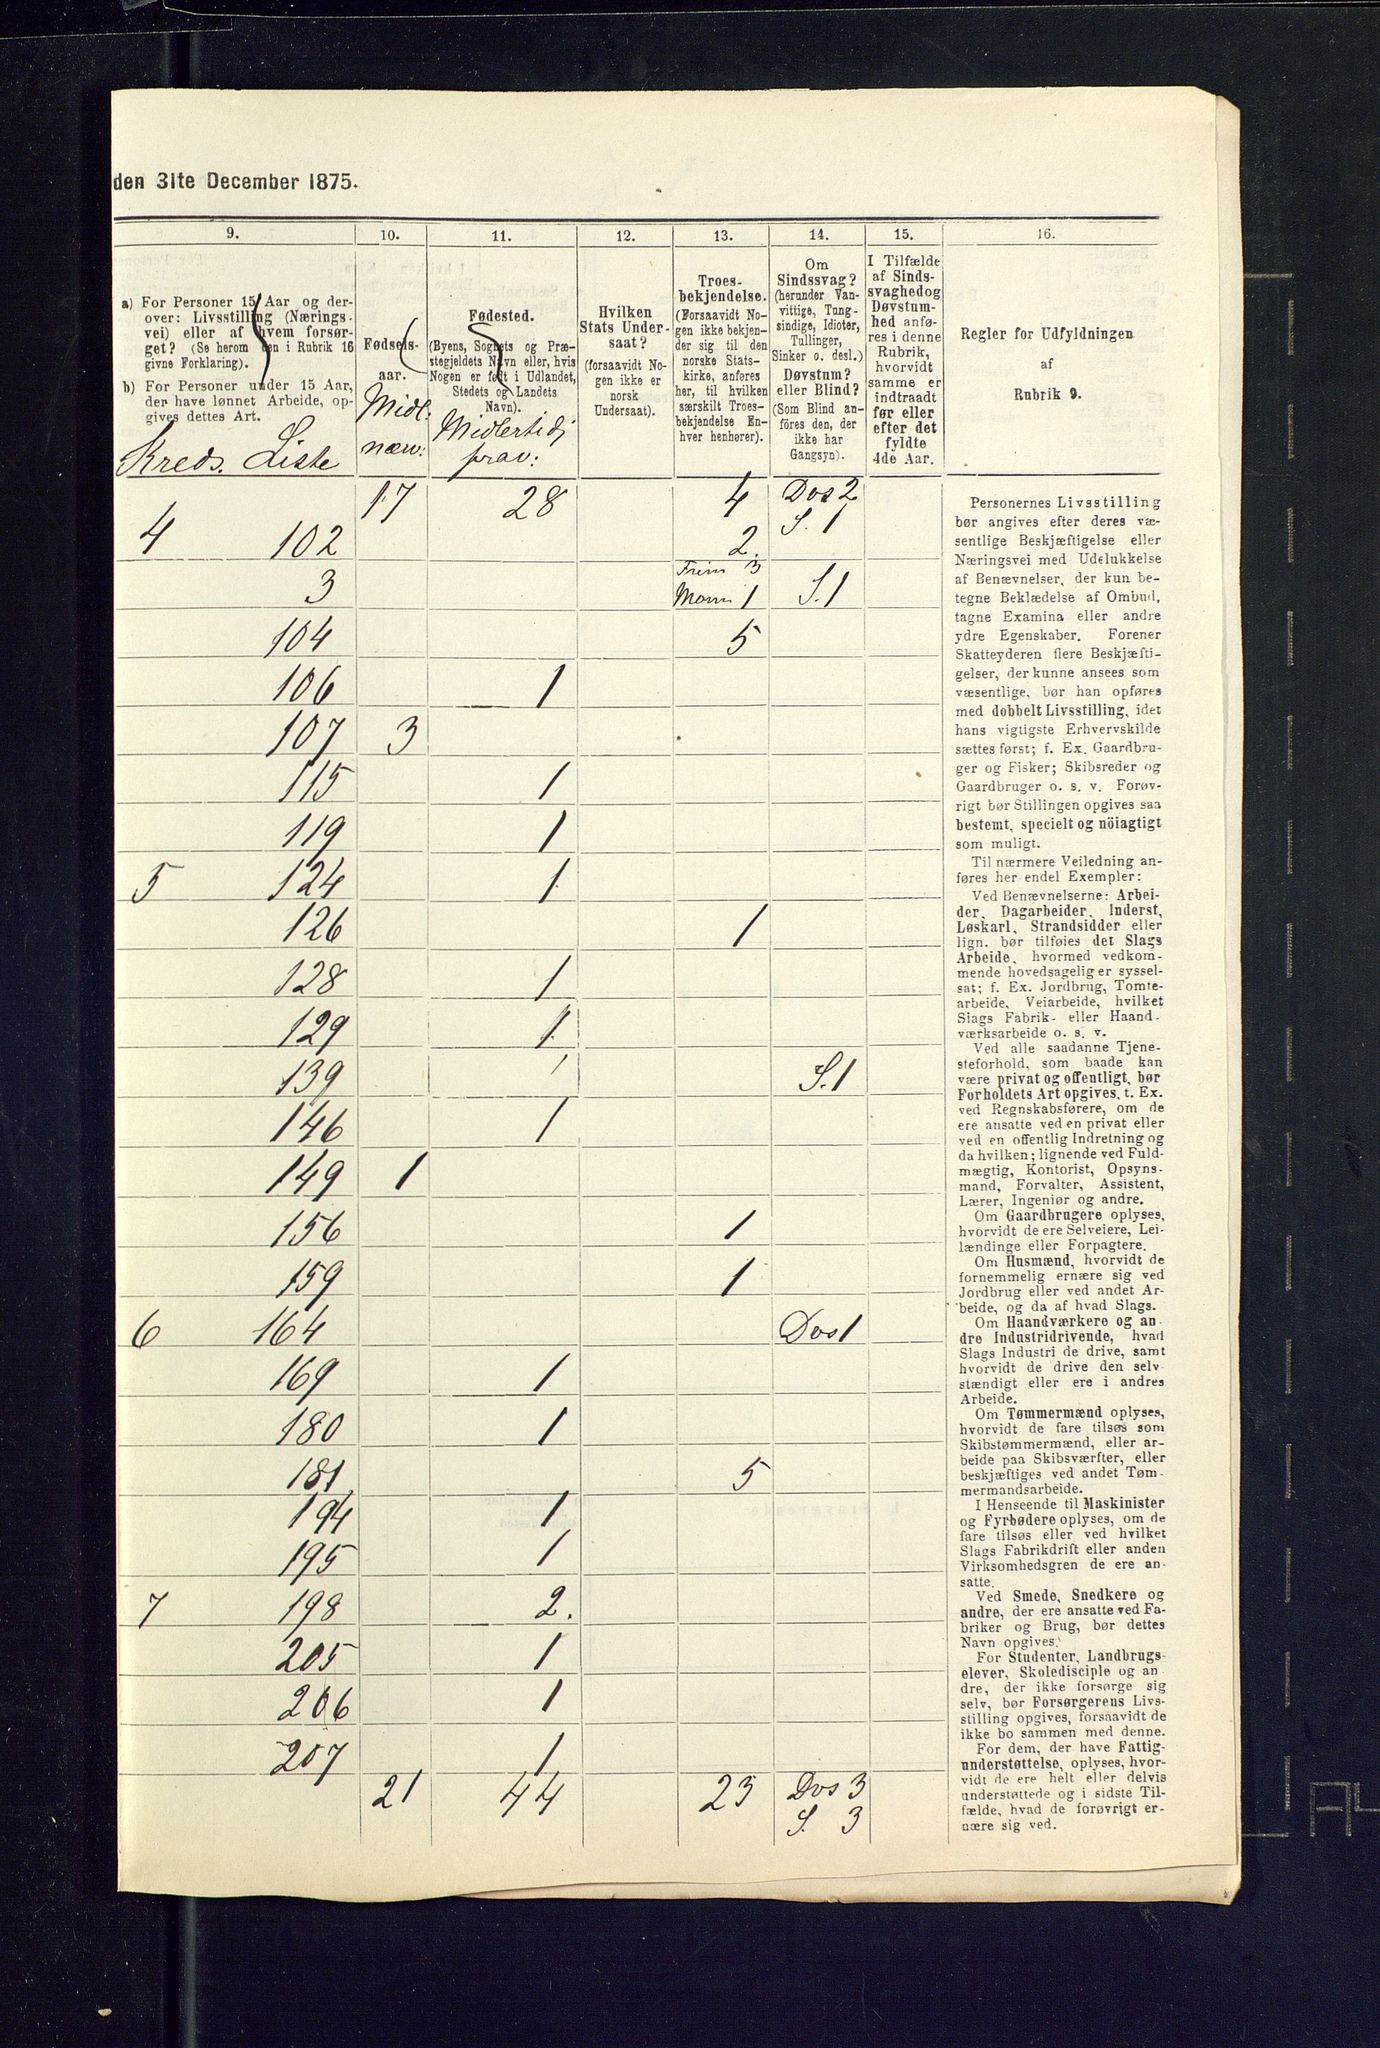 den 31te December 1875.
9. 10. 11. 12. 13. 14. 15. 16.
a) For Personer 15 Aar og der-
over: Livsstilling (Nærings-
vei) eller af hvem forsør-
get? (Se herom den i Rubrik 16
givne Forklaring).
b) For Personer under 15 Aar,
der have lønnet Arbeide, op-
gives dettes Art.
Kreds. Liste
Fødsels-
aar.
Midl:
næv:
Fødested.
(Byens, Sognets og Præ-
stegjeldets Navn eller, hvis
Nogen er født i Udlandet,
Stedets og Landets
Navn).
Midlertidj
frav:
Hvilken
Stats Under-
saat?
(forsaavidt No-
gen ikke er
norsk
Undersaat).
Troes-
bekjendelse.
(Forsaavidt No-
gen ikke bekjen-
der sig til den
norske Stats-
kirke, anføres
her, til hvilken
særskilt Troes-
bekjendelse En-
hver henhører).
Om
Sindssvag?
(herunder Van-
vittige, Tung-
sindige, Idioter,
Tullinger,
Sinker o. desl.)
Døvstum?
eller Blind?
(Som Blind an-
føres den, der
ikke har
Gangsyn).
I Tilfælde
af Sinds-
svaghed og
Døvstum-
hed anfø-
res i denne
Rubrik,
hvorvidt
samme er
indtraadt
før eller
efter det
fyldte
4de Aar.
Regler for Udfyldningen
af
Rubrik 9.
17 28 4 Døs 2
S. 1
4 102 2.
3 Frim 3
Morm 1 S. 1
104 5
106 1
107 3
115 1
119 1
5 124 1
126 1
128 1
129 1
139 S. 1
146 1
149 1
156 1
159 1
6 164 Døs 1
169 1
180 1
181 5
194 1
195 1
7 198 2.
205 1
206 1
207 1
21 44 23 Døs 3
S. 3
Personernes Livsstilling
bør angives efter deres væ-
sentlige Beskjæftigelse eller
Næringsvei med Udelukkelse
af Benævnelser, der kun be-
tegne Beklædelse af Ombud,
tagne Examina eller andre
ydre Egenskaber. Forener
Skatteyderen flere Beskjæfti-
gelser, der kunne ansees som
væsentlige, bør han opføres
med dobbelt Livsstilling, idet
hans vigtigste Erhvervskilde
sættes først; f. Ex. Gaardbru-
ger og Fisker; Skibsreder og
Gaardbruger o. s. v. Forøv-
rigt bør Stillingen opgives saa
bestemt, specielt og nöiagtigt
som muligt.
Til nærmere Veiledning an-
føres her endel Exempler:
Ved Benævnelserne: Arbei-
der, Dagarbeider, Inderst,
Løskarl, Strandsidder eller
lign. bør tilføies det Slags
Arbeide, hvormed vedkom-
mende hovedsagelig er syssel-
sat; f. Ex. Jordbrug, Tomte-
arbeide, Veiarbeide, hvilket
Slags Fabrik- eller Haand-
værksarbeide o. s. v.
Ved alle saadanne Tjene-
steforhold, som baade kan
være privat og offentligt, bør
Forholdets Art opgives, t. Ex.
ved Regnskabsførere, om de
ere ansatte ved en privat eller
ved en offentlig Indretning og
da hvilken; lignende ved Fuld-
mægtig, Kontorist, Opsyns-
mand, Forvalter, Assistent,
Lærer, Ingeniør og andre.
Om Gaardbrugere oplyses,
hvorvidt de ere Selveiere, Lei-
lændinge eller Forpagtere.
Om Husmænd, hvorvidt de
fornemmelig ernære sig ved
Jordbrug eller ved andet Ar-
beide, og da af hvad Slags.
Om Haandværkere og an-
dre Industridrivende, hvad
Slags Industri de drive, samt
hvorvidt de drive den selv-
stændigt eller ere i andres
Arbeide.
Om Tømmermænd oplyses,
hvorvidt de fare tilsøs som
Skibstømmermænd, eller ar-
beide paa Skibsværfter, eller
beskjæftiges ved andet Tøm-
mermandsarbeide.
I Henseende til Maskinister
og Fyrbødere oplyses, om de
fare tilsøs eller ved hvilket
Slags Fabrikdrift eller anden
Virksomhedsgren de ere an-
satte.
Ved Smede, Snedkere og
andre, der ere ansatte ved Fa-
briker og Brug, bør dettes
Navn opgives.
For Studenter, Landbrugs-
elever, Skoledisciple og an-
dre, der ikke forsørge sig
selv, bør Forsørgerens Livs-
stilling opgives, forsaavidt de
ikke bo sammen med denne.
For dem, der have Fattig-
understøttelse, oplyses, hvor-
vidt de ere helt eller delvis
understøttede og i sidste Til-
fælde, hvad de forøvrigt er-
nære sig ved.
A4